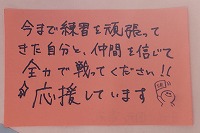 今まで練習を頑張って
きた自分と、仲間を信じて
全力で戦ってください!!
応援しています